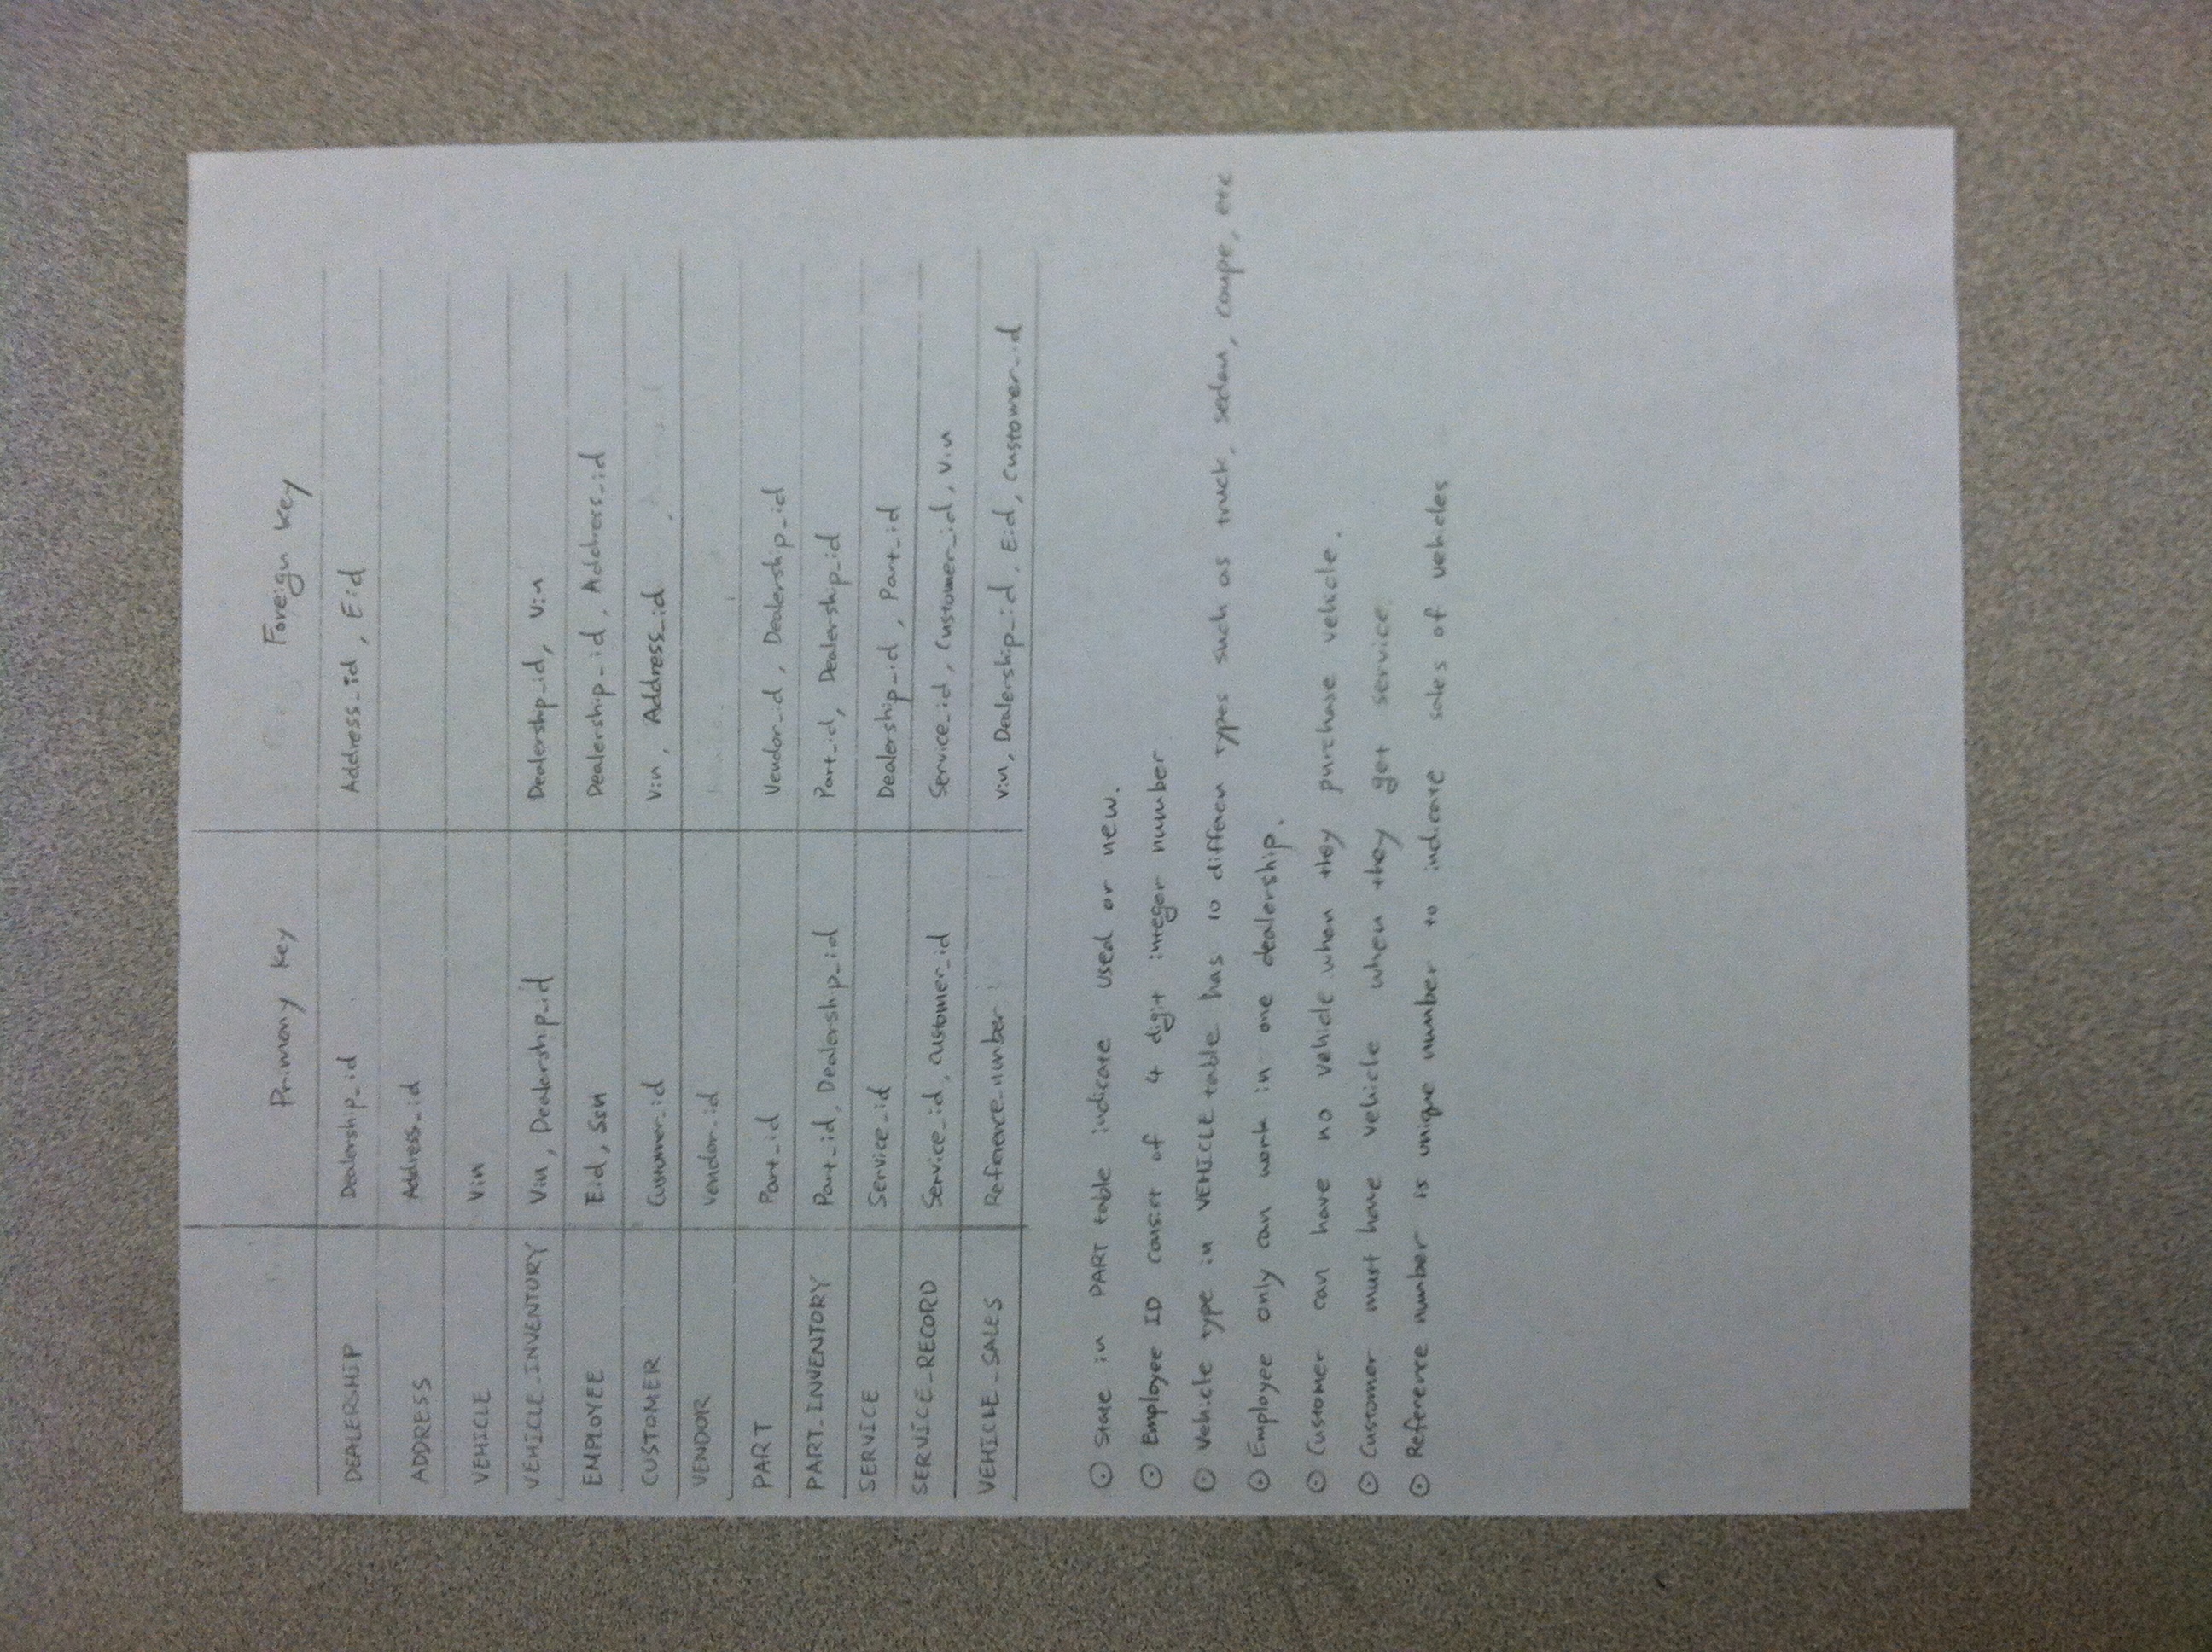 Primary Key Foreign Key
DEALERSHIP Dealership_id Address_id, Eid
ADDRESS Address_id
VEHICLE Vin
VEHICLE_INVENTORY Vin, Dealership_id Dealership_id, Vin
EMPLOYEE Eid, Ssn Dealership_id, Address_id
CUSTOMER Customer_id Vin, Address_id
VENDOR Vendor_id
PART Part_id Vendor_id, Dealership_id
PART_INVENTORY Part_id, Dealership_id Part_id, Dealership_id
SERVICE Service_id Dealership_id, Part_id
SERVICE_RECORD Service_id, customer_id Service_id, Customer_id, Vin
VEHICLE_SALES Reference_number Vin, Dealership_id, Eid, Customer_id
⊙ State in PART table indicate used or new.
⊙ Employee ID consist of 4 digit integer number
⊙ Vehicle type in VEHICLE table has 10 differen types such as truck, sedan, coupe, etc
⊙ Employee only can work in one dealership.
⊙ Customer can have no vehicle when they purchase vehicle.
⊙ Customer must have vehicle when they get service
⊙ Reference number is unique number to indicate sales of vehicles